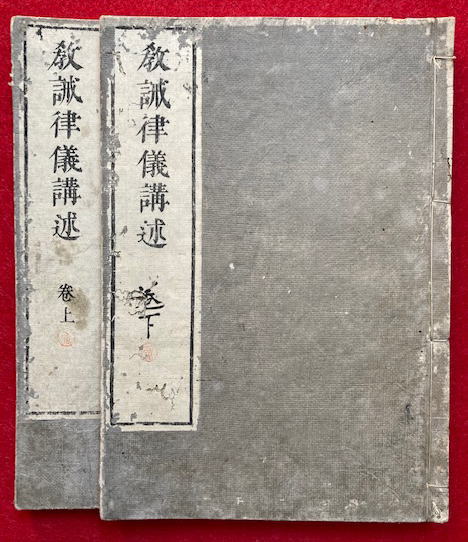 教誡律儀講述
卷下
教誡律儀講述
卷上